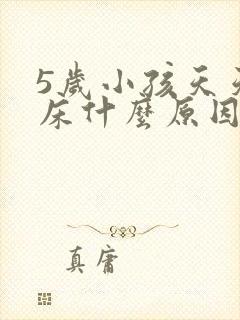 5歲小孩天天
床什麼原因
真庸